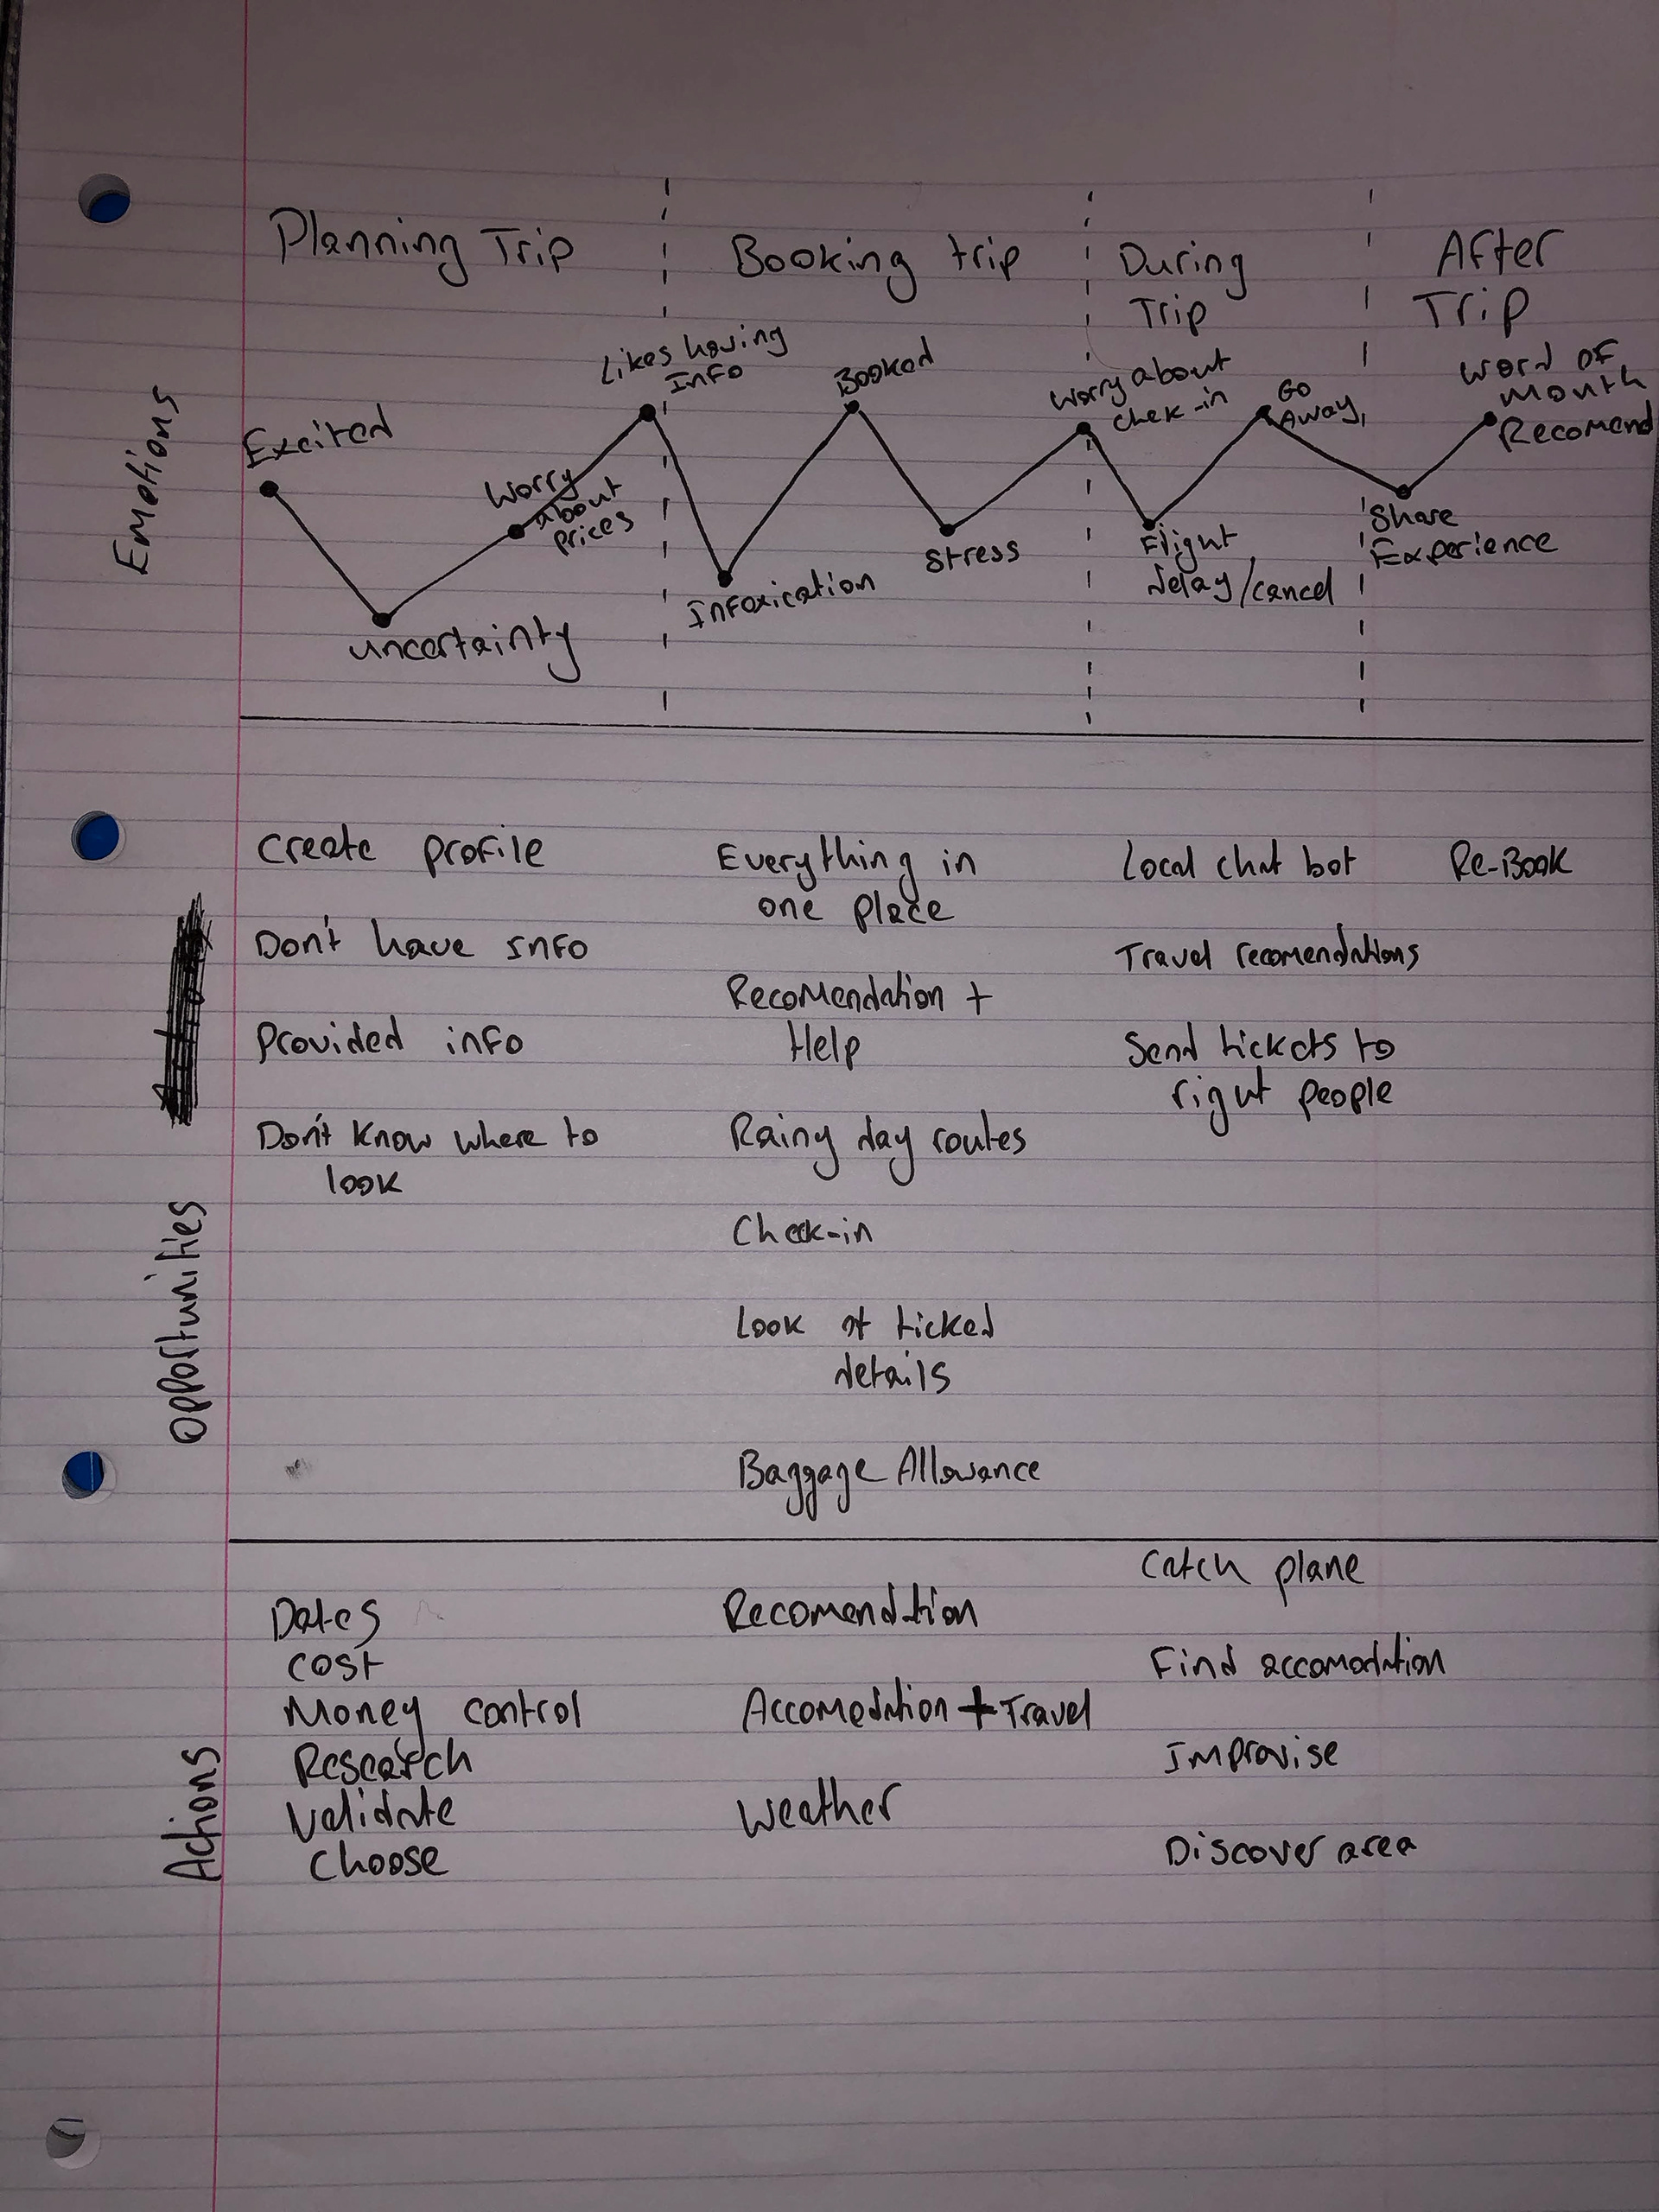 Planning Trip
Booking trip
During
Trip
After
Trip
Emotions
Excited
uncertainty
Worry
about
prices
Likes having
Info
Infoxication
Booked
Stress
Worry about
chek-in
Flight
delay/cancel
Go
Away
Share
Experience
Word of
Month
Recomend
Opportunities
Create profile
Don't have info
Provided info
Don't know where to
look
Everything in
one place
Recomendation +
Help
Rainy day routes
Check-in
Look at ticked
details
Baggage Allowance
Local chat bot
Travel recomendations
Send tickets to
right people
Re-Book
Actions
Dates
Cost
Money control
Research
Validate
Choose
Recomendation
Accomodation + Travel
Weather
Catch plane
Find accomodation
Improvise
Discover area